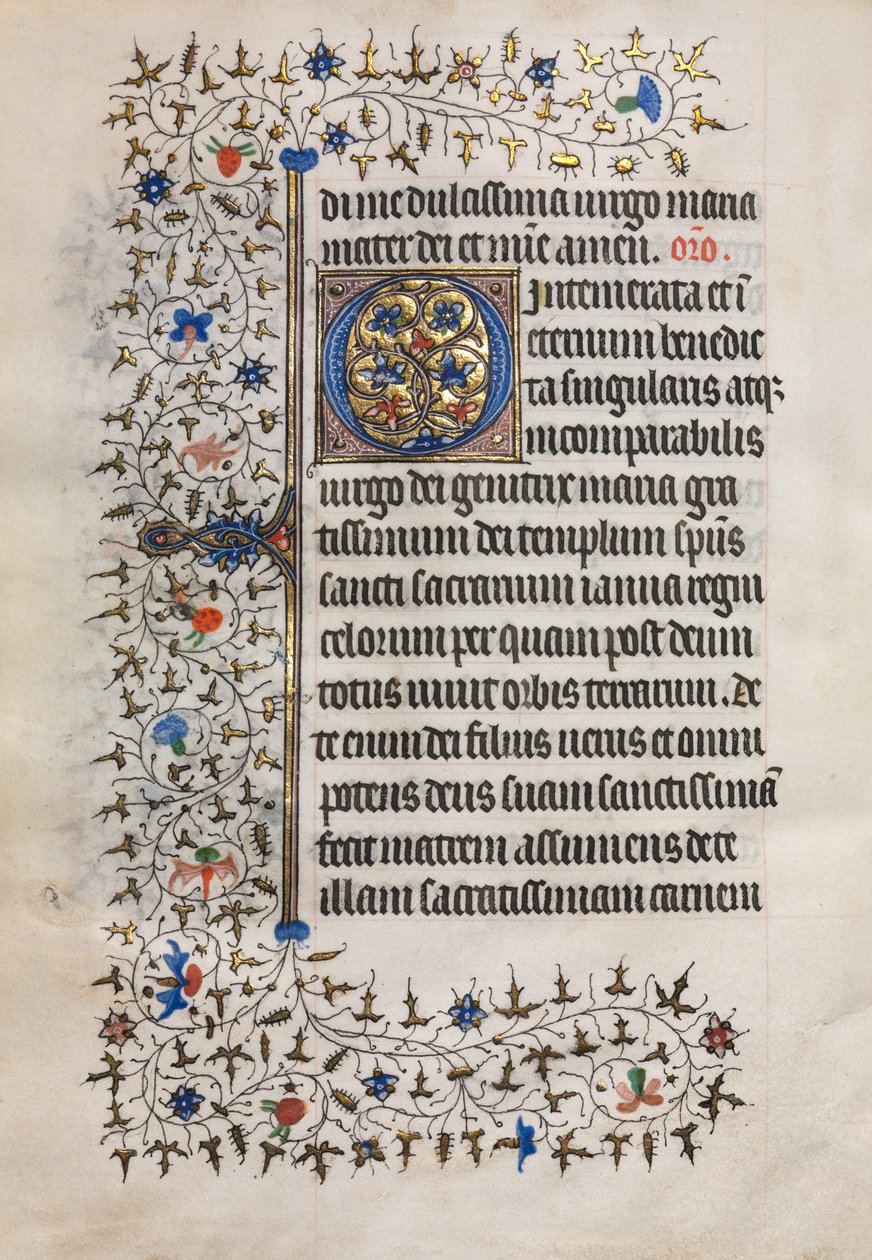 di me dulcissima uirgo maria
mater dei et mīe amen. orō.
O intemerata et ī
eternum benedic
ta singularis atqꝫ
incomparabilis
uirgo dei genitrix maria gra
tissimum dei templum spūs
sancti sacrarium ianua regni
celorum per quam post deum
totus uiuit orbis terrarum. De
te enim dei filius uerus et omni
potens deus suam sanctissimā
fecit matrem assumens de te
illam sacratissimam carnem